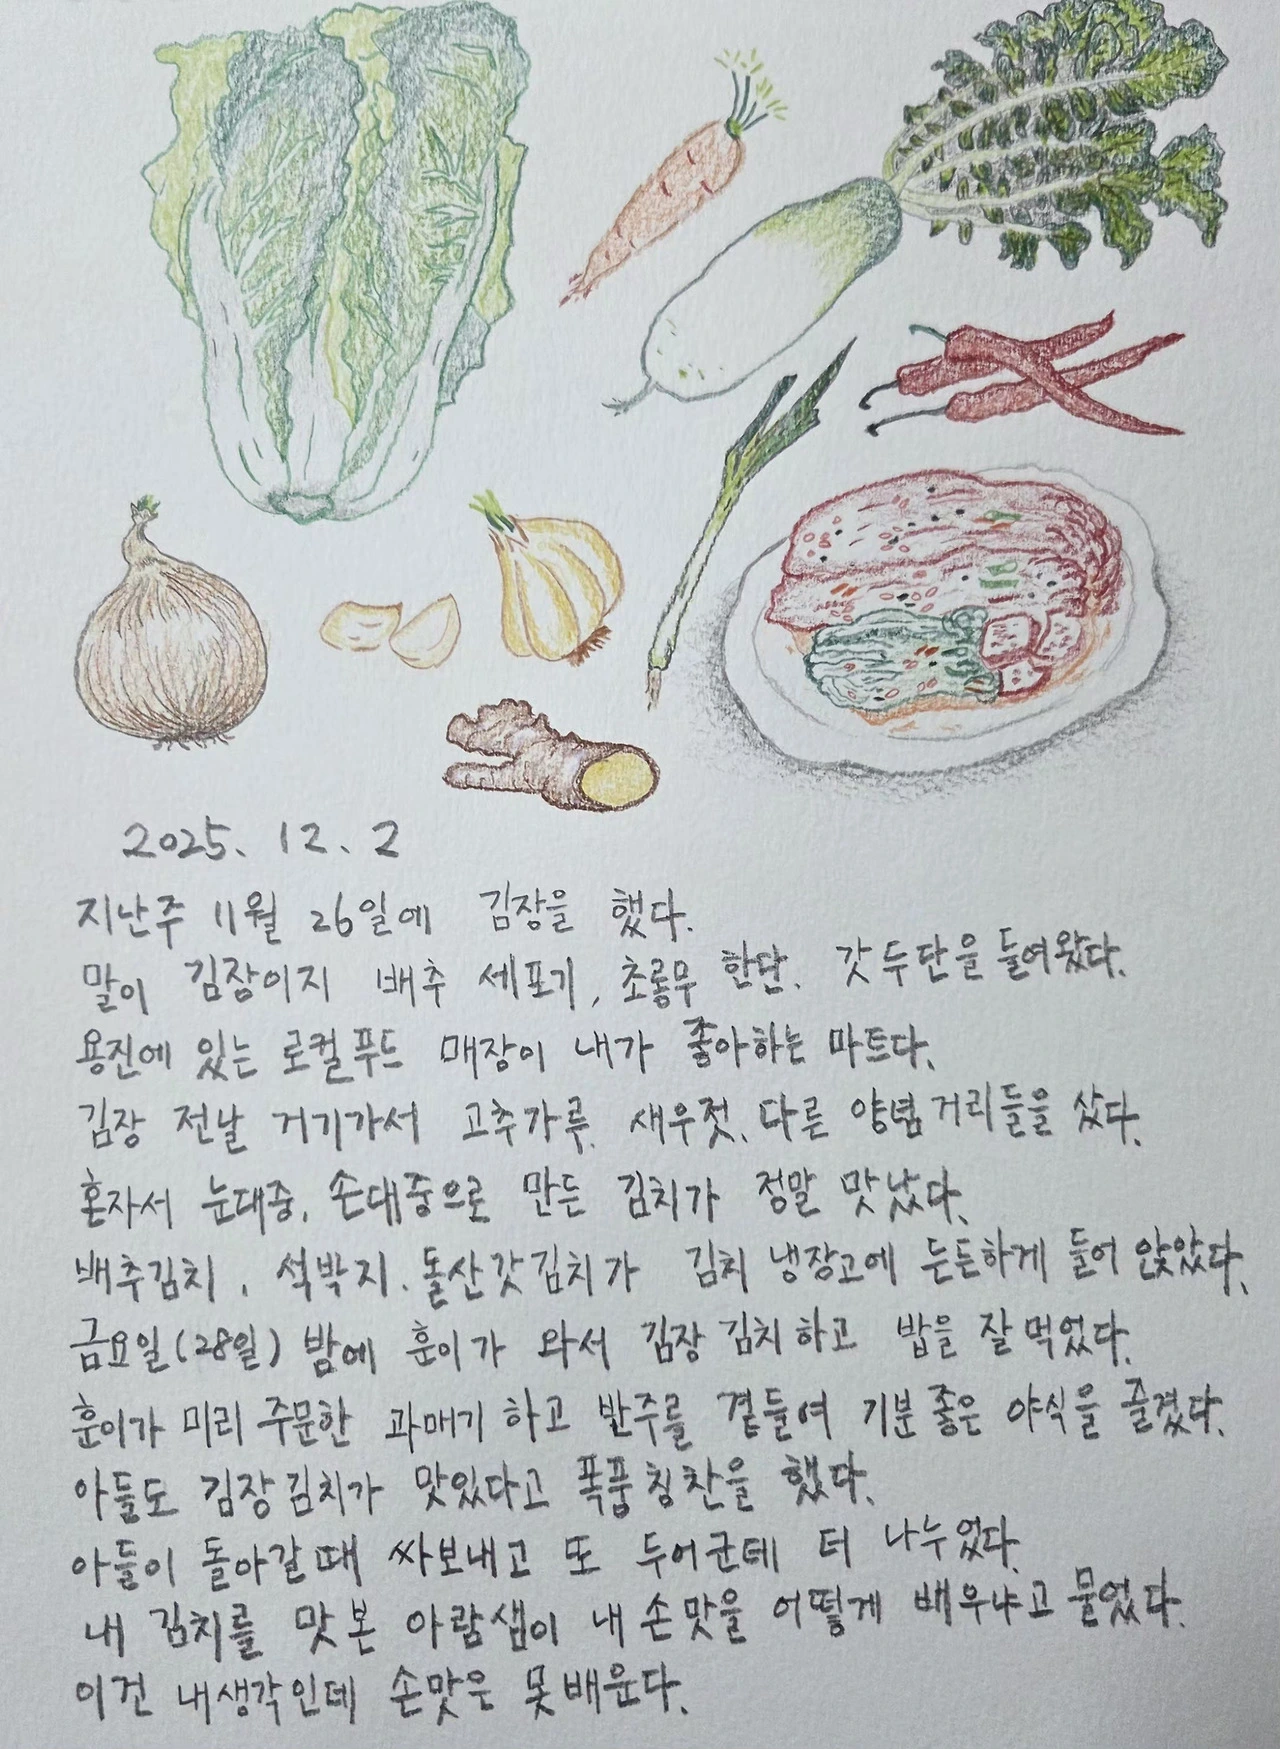 2025. 12. 2
지난주 11월 26일에 김장을 했다.
말이 김장이지 배추 세포기, 초롱무 한단. 갓 두단을 들여왔다.
용진에 있는 로컬푸드 매장이 내가 좋아하는 마트다.
김장 전날 거기가서 고추가루, 새우젓, 다른 양념거리들을 샀다.
혼자서 눈대중, 손대중으로 만든 김치가 정말 맛났다.
배추김치, 석박지. 돌산갓김치가 김치 냉장고에 든든하게 들어 앉았다.
금요일(28일) 밤에 훈이가 와서 김장김치하고 밥을 잘 먹었다.
훈이가 미리 주문한 과매기하고 반주를 곁들여 기분좋은 야식을 즐겼다.
아들도 김장김치가 맛있다고 폭풍칭찬을 했다.
아들이 돌아갈때 싸보내고 또 두어군테 더 나누었다.
내 김치를 맛본 아람샘이 내 손맛을 어떻게 배우냐고 물었다.
이건 내생각인데 손맛은 못배운다.